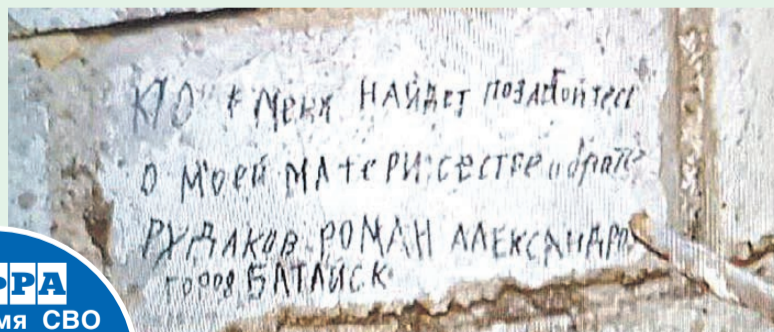 КТО меня НАЙДЕТ позаботтесь
о моей МАТЕРИ: СЕСТРЕ и брате
РУДАКОВ РОМАН АЛЕКСАНДРО
город БАТАЙСК
СВО